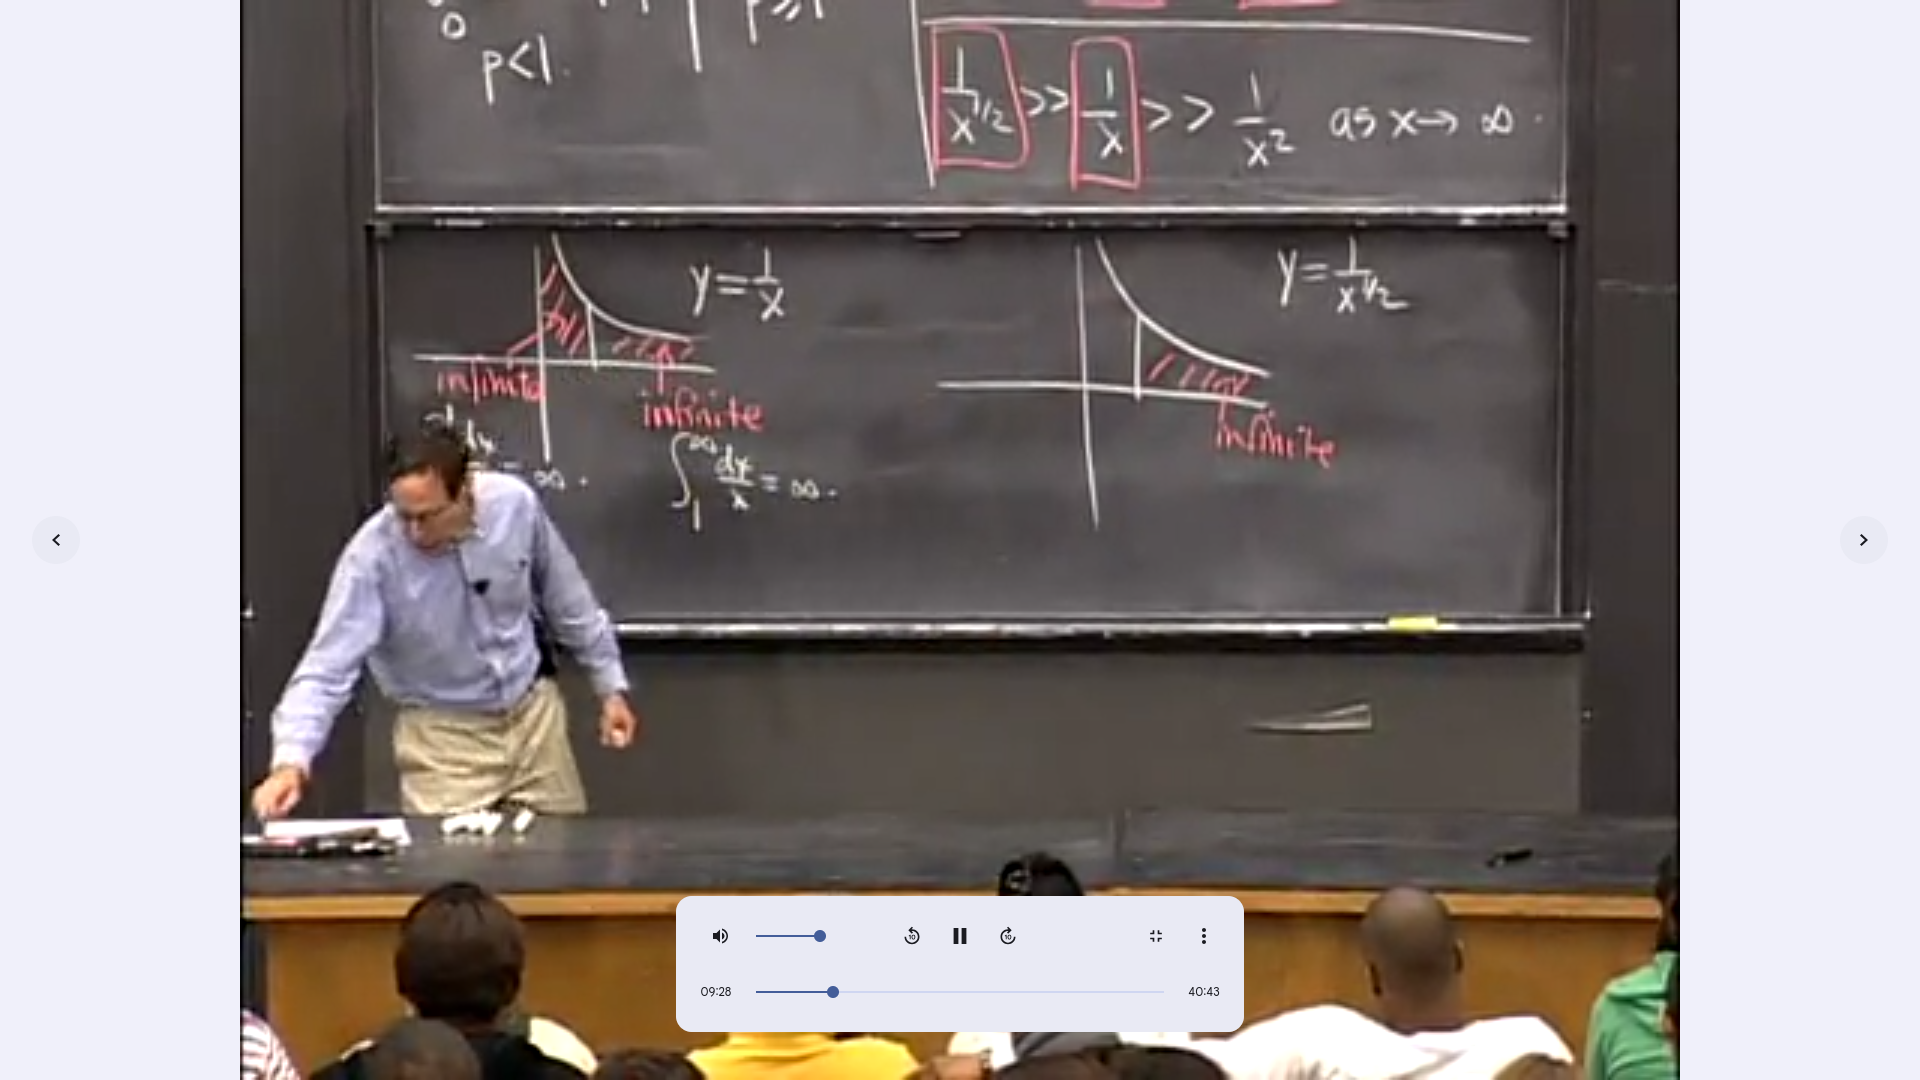 0
p<1.
p≥1
1/x^1/2 >> 1/x >> 1/x² as x→∞.
y=1/x
infinite
infinite
=∞.
∫₁^∞ dx/x = ∞.
y=1/x^1/2
infinite
10
10
09:28
40:43